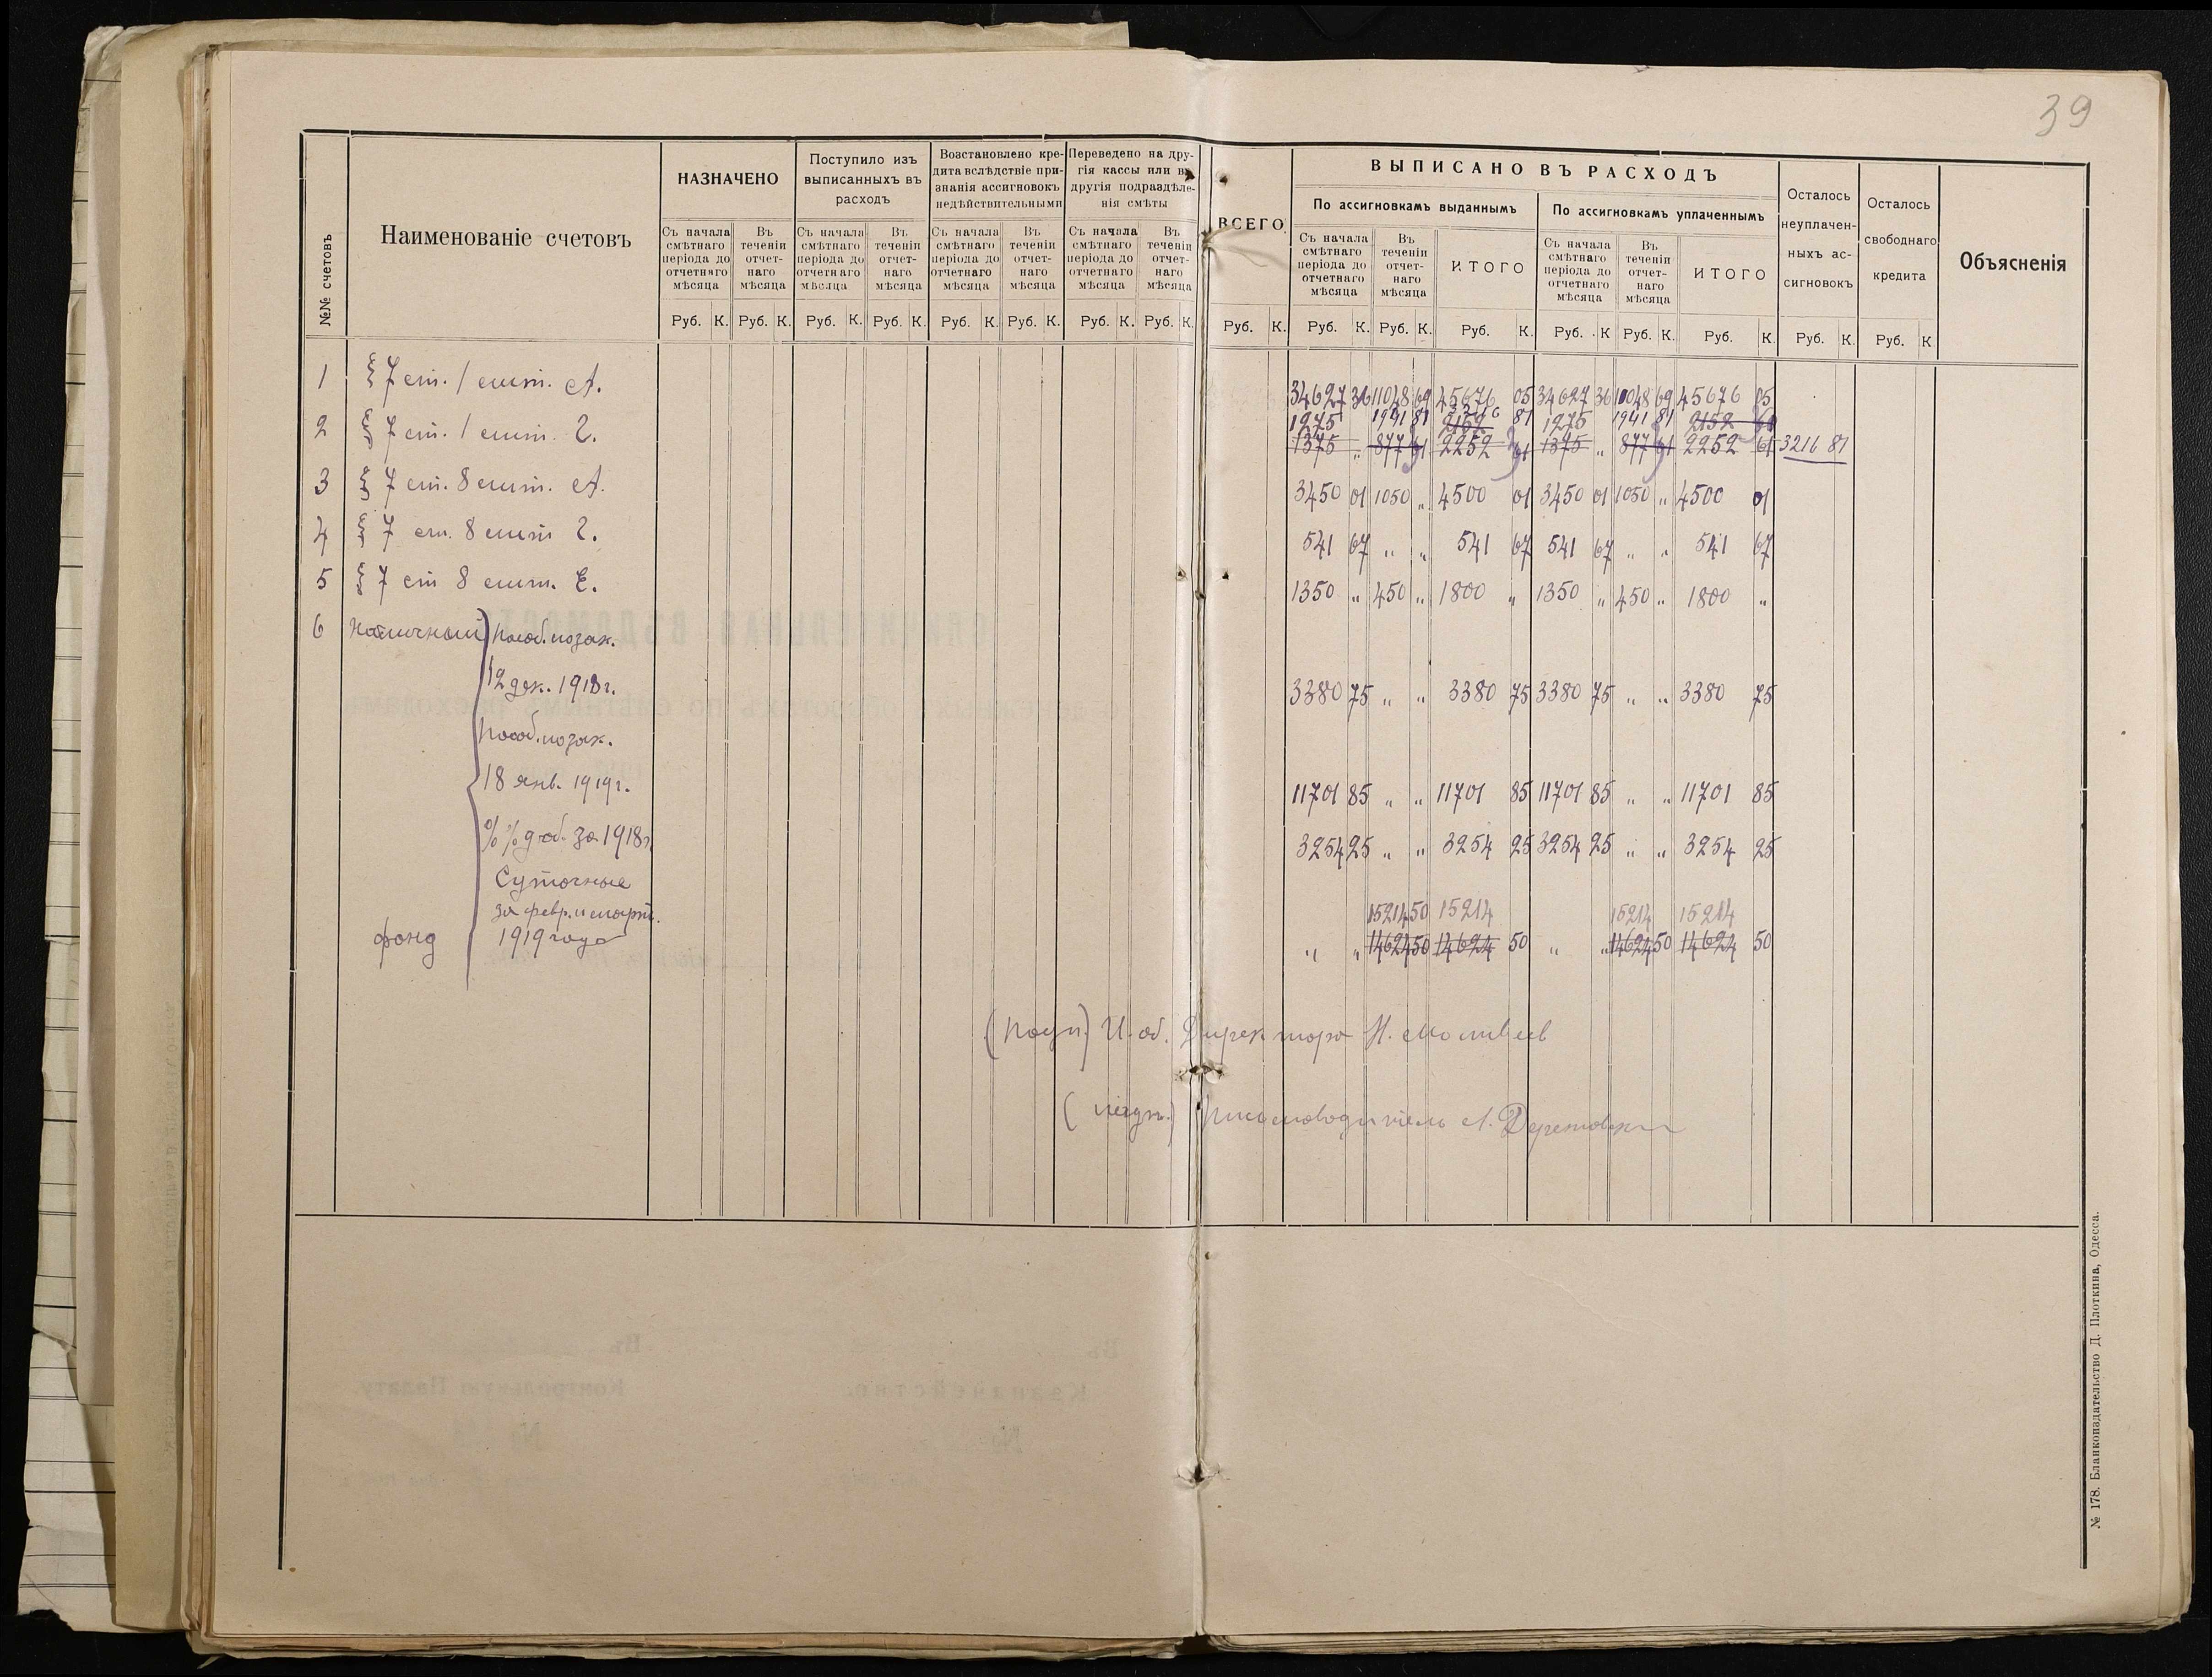 39
№№ счетовъ
Наименованіе счетовъ
НАЗНАЧЕНО
Поступило изъ
выписанныхъ въ
расходъ
Возстановлено кре-
дита вслѣдствіе при-
знанія ассигновокъ
недѣйствительными
Переведено на дру-
гія кассы или въ
другія подраздѣле-
нія смѣты
ВСЕГО
ВЫПИСАНО ВЪ РАСХОДЪ
По ассигновкамъ выданнымъ
По ассигновкамъ уплаченнымъ
Осталось
неуплачен-
ныхъ ас-
сигновокъ
Осталось
свободнаго
кредита
Объясненія
Съ начала смѣтнаго періода до отчетнаго мѣсяца
Въ теченіи отчет- наго мѣсяца
Съ начала смѣтнаго періода до отчетнаго мѣсяца
Въ теченіи отчет- наго мѣсяца
Съ начала смѣтнаго періода до отчетнаго мѣсяца
Въ теченіи отчет- наго мѣсяца
Съ начала смѣтнаго періода до отчетнаго мѣсяца
Въ теченіи отчет- наго мѣсяца
Съ начала смѣтнаго періода до отчетнаго мѣсяца
Въ теченіи отчет- наго мѣсяца
ИТОГО
Съ начала смѣтнаго періода до отчетнаго мѣсяца
Въ теченіи отчет- наго мѣсяца
ИТОГО
Руб. К. Руб. К. Руб. К. Руб. К. Руб. К. Руб. К. Руб. К. Руб. К. Руб. К. Руб. К. Руб. К. Руб. К. Руб. К Руб. К. Руб. К. Руб. К. Руб. К
1 § 7 ст. 1 лит. А. 34627 36 11048 69 45676 05 34627 36 11048 69 45676 05
1275 1941 81 2152 81 1275 1941 81 2152
2 § 7 ст. 1 лит. 2. 1375 „ 877 61 2252 61 1375 „ 877 61 2252 61 3216 81
3 § 7 ст. 8 лит. А. 3450 01 1050 „ 4500 01 3450 01 1050 „ 4500 01
4 § 7 ст. 8 лит 2. 541 67 „ „ 541 67 541 67 „ „ 541 67
5 § 7 ст 8 лит. Е. 1350 „ 450 „ 1800 „ 1350 „ 450 „ 1800 „
6 Наличный пособ. по зак.
12 дек. 1918 г. 3380 75 „ „ 3380 75 3380 75 „ „ 3380 75
пособ. по зак.
18 янв. 1919 г. 11701 85 „ „ 11701 85 11701 85 „ „ 11701 85
%% доб. за 1918 г. 3254 25 „ „ 3254 25 3254 25 „ „ 3254 25
Суточные
за февр. и март. 15214 50 15214 15214 15214
фонд 1919 года „ „ 14624 50 14624 50 „ „ 14624 50 14624 50
(подп.) И. об. Директора Н. Матвеев
(подп.) Письмоводитель А.
№ 178. Бланкоиздательство Д. Плоткина, Одесса.